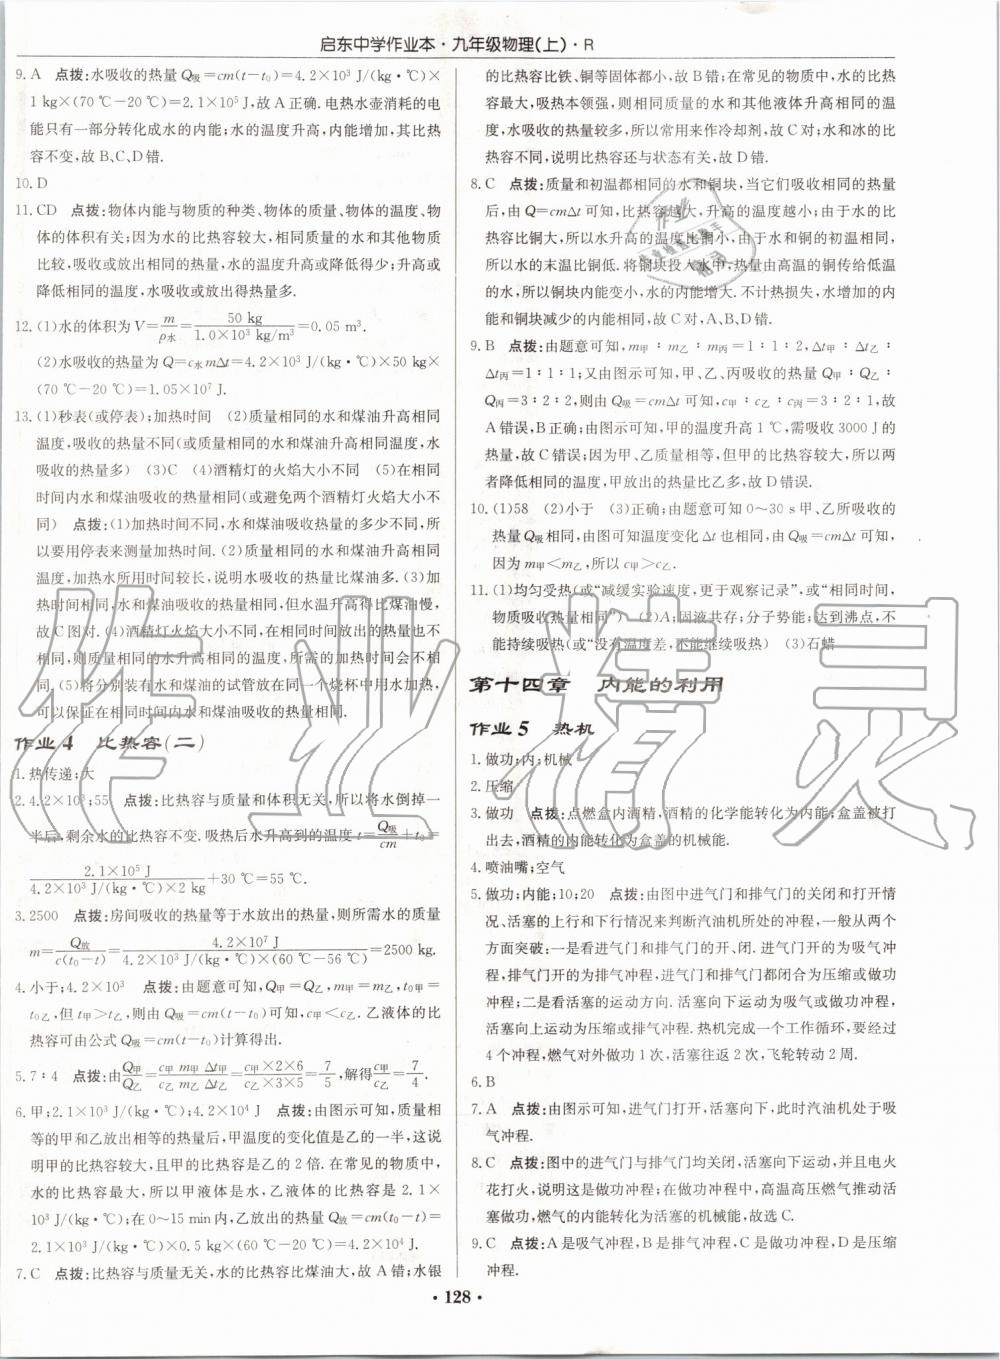 启东中学作业本·九年级物理(上)·R
9. A 点拨:水吸收的热量Q吸=cm(t-t₀)=4.2×10³ J/(kg·℃)×
1 kg×(70 ℃-20 ℃)=2.1×10⁵ J,故A正确.电热水壶消耗的电
能只有一部分转化成水的内能;水的温度升高,内能增加,其比热
容不变,故B、C、D错.
10. D
11. CD 点拨:物体内能与物质的种类、物体的质量、物体的温度、物
体的体积有关;因为水的比热容较大,相同质量的水和其他物质
比较,吸收或放出相同的热量,水的温度升高或降低得少;升高或
降低相同的温度,水吸收或放出得热量多.
12. (1)水的体积为V=m/ρ水=50 kg/1.0×10³ kg/m³=0.05 m³.
(2)水吸收的热量为Q=c水mΔt=4.2×10³ J/(kg·℃)×50 kg×
(70 ℃-20 ℃)=1.05×10⁷ J.
13. (1)秒表(或停表);加热时间 (2)质量相同的水和煤油升高相同
温度,吸收的热量不同(或质量相同的水和煤油升高相同温度,水
吸收的热量多) (3)C (4)酒精灯的火焰大小不同 (5)在相同
时间内水和煤油吸收的热量相同(或避免两个酒精灯火焰大小不
同) 点拨:(1)加热时间不同,水和煤油吸收热量的多少不同,所
以要用停表来测量加热时间.(2)质量相同的水和煤油升高相同
温度,加热水所用时间较长,说明水吸收的热量比煤油多.(3)加
热时间相同,水和煤油吸收的热量相同,但水温升得比煤油慢,
故C图对.(4)酒精灯火焰大小不同,在相同时间放出的热量也不
相同,则质量相同的水升高相同的温度,所需的加热时间将不相同.
(5)将分别装有水和煤油的试管放在同一个烧杯中用水加热,
可以保证在相同时间内水和煤油吸收的热量相同.
作业4 比热容(二)
1. 热传递;大
2. 4.2×10³;55 点拨:比热容与质量和体积无关,所以将水倒掉一
半后,剩余水的比热容不变.吸热后水升高到的温度t=Q吸/cm+t₀=
2.1×10⁵ J/4.2×10³ J/(kg·℃)×2 kg+30 ℃=55 ℃.
3. 2500 点拨:房间吸收的热量等于水放出的热量,则所需水的质量
m=Q放/c(t₀-t)=4.2×10⁷ J/4.2×10³ J/(kg·℃)×(60 ℃-56 ℃)=2500 kg.
4. 小于;4.2×10³ 点拨:由题意可知,Q甲=Q乙,m甲=m乙,t₀甲=
t₀乙,但t甲>t乙,则由Q吸=cm(t-t₀)可知,c甲<c乙.乙液体的比
热容可由公式Q吸=cm(t-t₀)计算得出.
5. 7∶4 点拨:由Q甲/Q乙=c甲m甲Δt甲/c乙m乙Δt乙=c甲×2×6/c乙×3×5=7/5,解得c甲/c乙=7/4.
6. 甲;2.1×10³ J/(kg·℃);4.2×10⁴ J 点拨:由图示可知,质量相
等的甲和乙放出相同的热量后,甲温度的变化值是乙的一半,这说
明甲的比热容较大,且甲的比热容是乙的2倍.在常见的物质中,
水的比热容最大,所以甲液体是水,乙液体的比热容是2.1×
10³ J/(kg·℃);在0~15 min内,乙放出的热量Q放=cm(t₀-t)=
2.1×10³ J/(kg·℃)×0.5 kg×(60 ℃-20 ℃)=4.2×10⁴ J.
7. C 点拨:比热容与质量无关,水的比热容比煤油大,故A错;水银
的比热容比铁、铜等固体都小,故B错;在常见的物质中,水的比热
容最大,吸热本领强,则相同质量的水和其他液体升高相同的温
度,水吸收的热量较多,所以常用来作冷却剂,故C对;水和冰的比
热容不同,说明比热容还与状态有关,故D错.
8. C 点拨:质量和初温都相同的水和铜块,当它们吸收相同的热量
后,由Q=cmΔt可知,比热容越大,升高的温度越小;由于水的比
热容比铜大,所以水升高的温度比铜小,由于水和铜的初温相同,
所以水的末温比铜低.将铜块投入水中,热量由高温的铜传给低温
的水,所以铜块内能变小,水的内能增大.不计热损失,水增加的内
能和铜块减少的内能相同,故C对,A、B、D错.
9. B 点拨:由题意可知,m甲∶m乙∶m丙=1∶1∶2,Δt甲∶Δt乙∶
Δt丙=1∶1∶1;又由图示可知,甲、乙、丙吸收的热量Q甲∶Q乙∶
Q丙=3∶2∶2,则由Q吸=cmΔt可知,c甲∶c乙∶c丙=3∶2∶1,故
A错误,B正确;由图示可知,甲的温度升高1 ℃,需吸收3000 J的
热量,故C错误;因为甲、乙质量相等,但甲的比热容较大,所以两
者降低相同的温度,甲放出的热量比乙多,故D错误.
10. (1)58 (2)小于 (3)正确;由题意可知0~30 s甲、乙所吸收的
热量Q吸相同,由图可知温度变化Δt也相同,由Q吸=cmΔt可知,
因为m甲<m乙,所以c甲>c乙.
11. (1)均匀受热(或“减缓实验速度,更于观察记录”,或“相同时间,
物质吸收热量相同”) (2)A;固液共存;分子势能;达到沸点,不
能持续吸热(或“没有温度差,不能继续吸热) (3)石蜡
第十四章 内能的利用
作业5 热机
1. 做功;内;机械
2. 压缩
3. 做功 点拨:点燃盒内酒精,酒精的化学能转化为内能;盒盖被打
出去,酒精的内能转化为盒盖的机械能.
4. 喷油嘴;空气
5. 做功;内能;10;20 点拨:由图中进气门和排气门的关闭和打开情
况、活塞的上行和下行情况来判断汽油机所处的冲程,一般从两个
方面突破:一是看进气门和排气门的开、闭.进气门开的为吸气冲
程,排气门开的为排气冲程,进气门和排气门都闭合为压缩或做功
冲程;二是看活塞的运动方向.活塞向下运动为吸气或做功冲程,
活塞向上运动为压缩或排气冲程.热机完成一个工作循环,要经过
4个冲程,燃气对外做功1次,活塞往返2次,飞轮转动2周.
6. B
7. A 点拨:由图示可知,进气门打开,活塞向下,此时汽油机处于吸
气冲程.
8. C 点拨:图中的进气门与排气门均关闭,活塞向下运动,并且电火
花打火,说明这是做功冲程;在做功冲程中,高温高压燃气推动活
塞做功,燃气的内能转化为活塞的机械能,故选C.
9. C 点拨:A是吸气冲程,B是排气冲程,C是做功冲程,D是压缩
冲程.
·128·
作业精灵